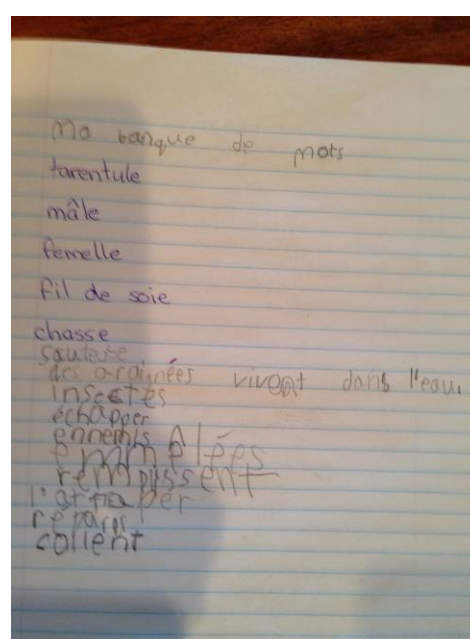 Ma banque de mots
tarentule
mâle
femelle
fil de soie
chasse
sauteuse
des araignées vivent dans l'eau
insectes
échapper
ennemis
emmêlées
remplissent
l'attraper
collent